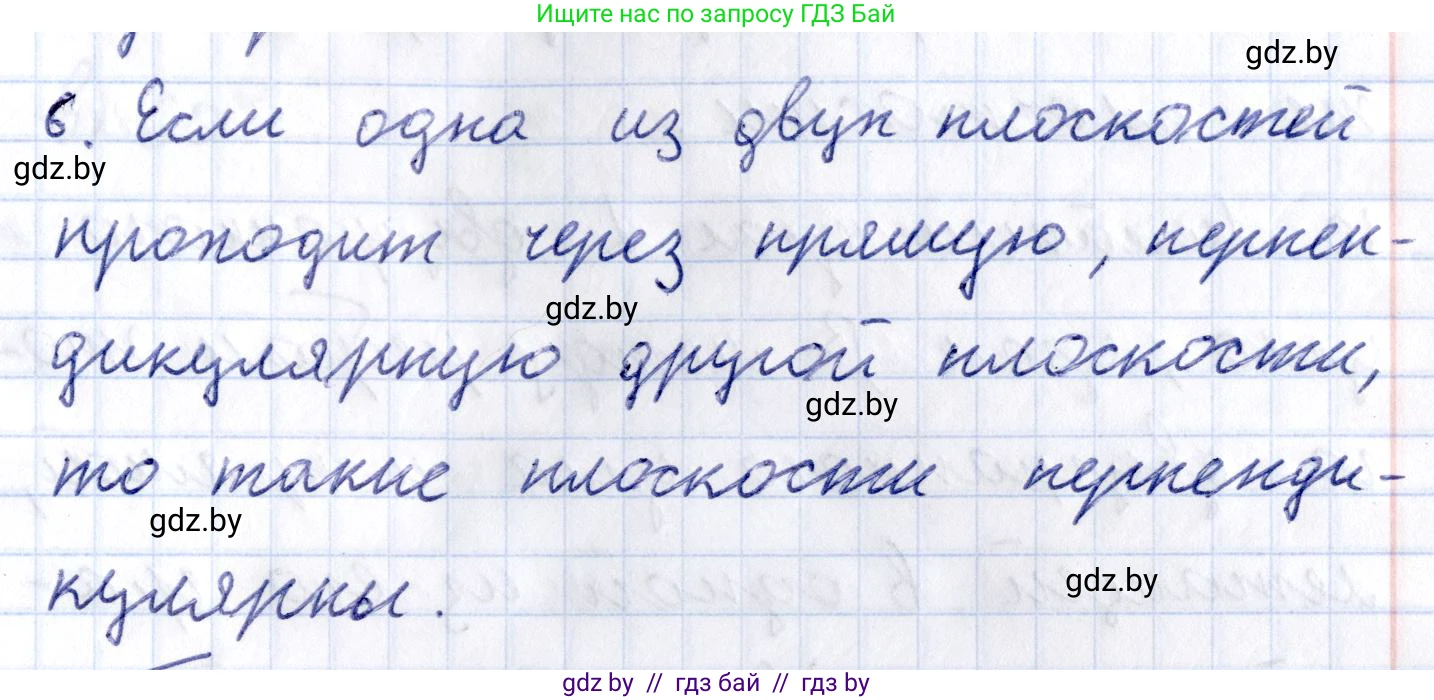 Ищите нас по запросу ГДЗ Бай
gdz.by
6. Если одна из двух плоскостей
gdz.by
проходит через прямую, перпен-
gdz.by
дикулярную другой плоскости,
gdz.by
то такие плоскости перпенди-
gdz.by
кулярны.
gdz.by
gdz.by // гдз бай // gdz.by